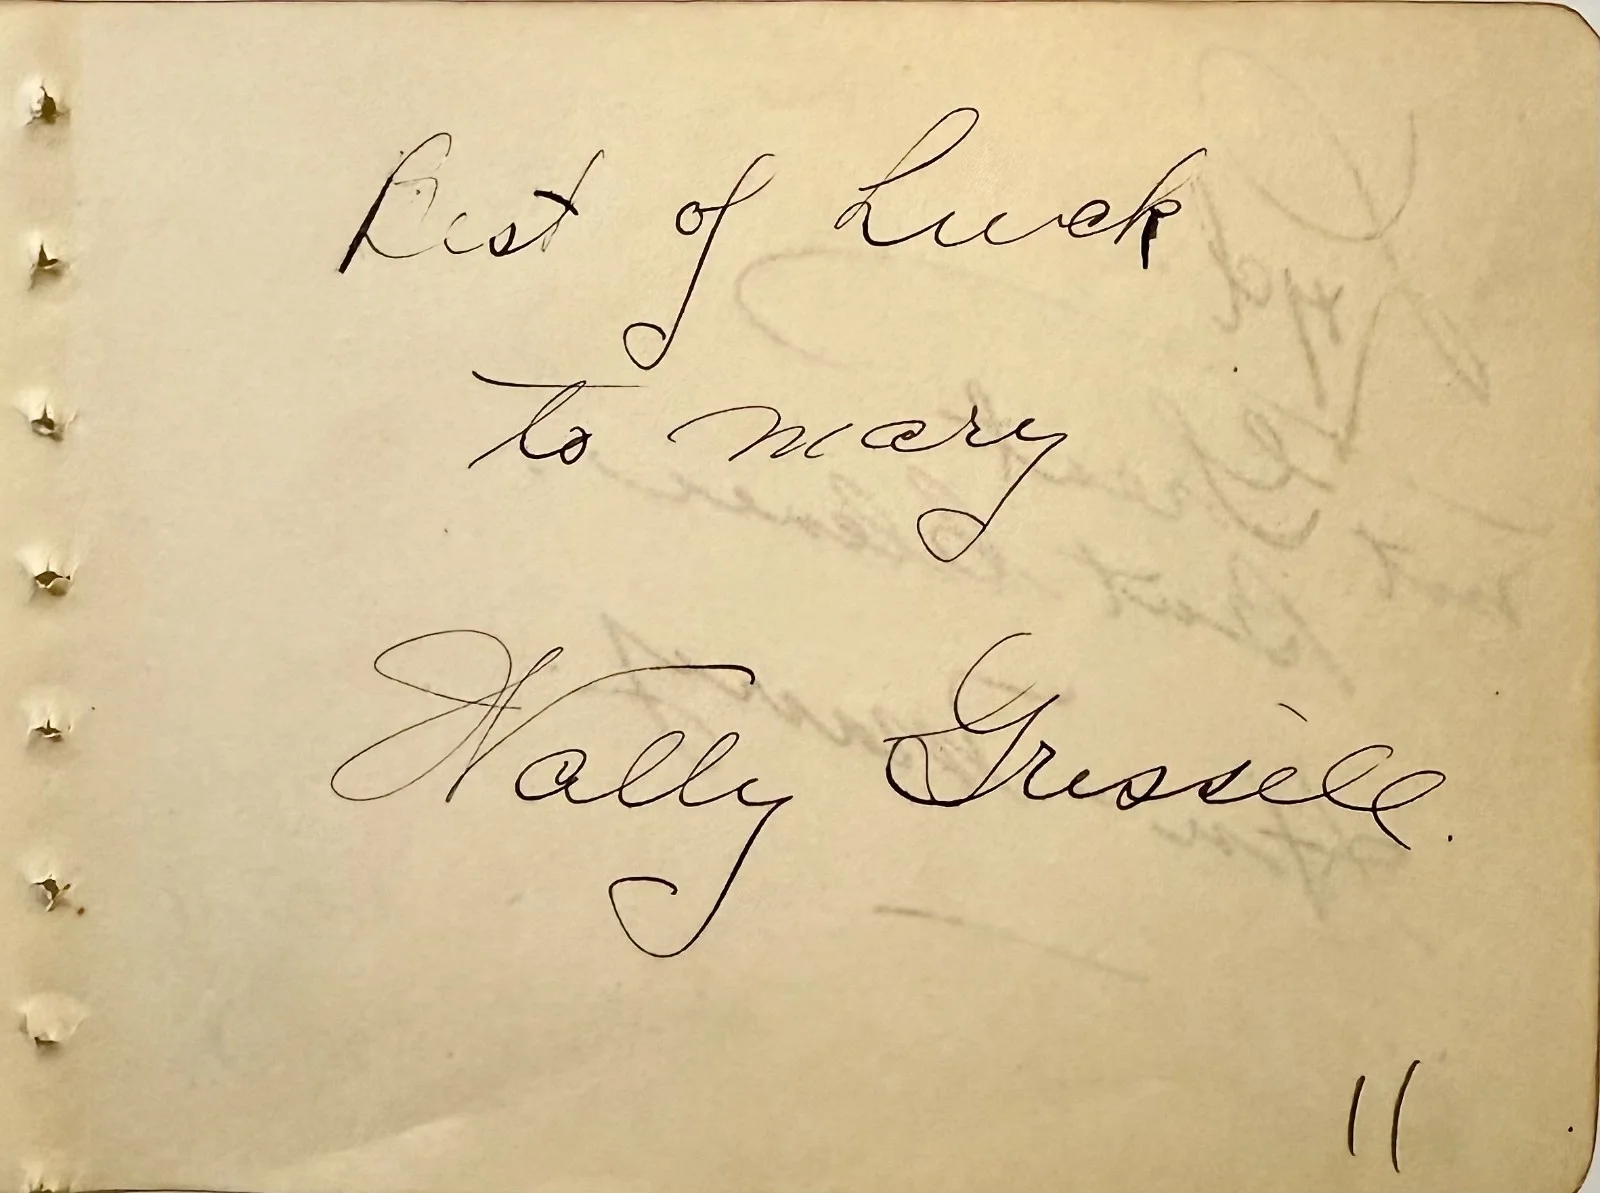 Best of Luck
to Mary
Wally Grissell.
11